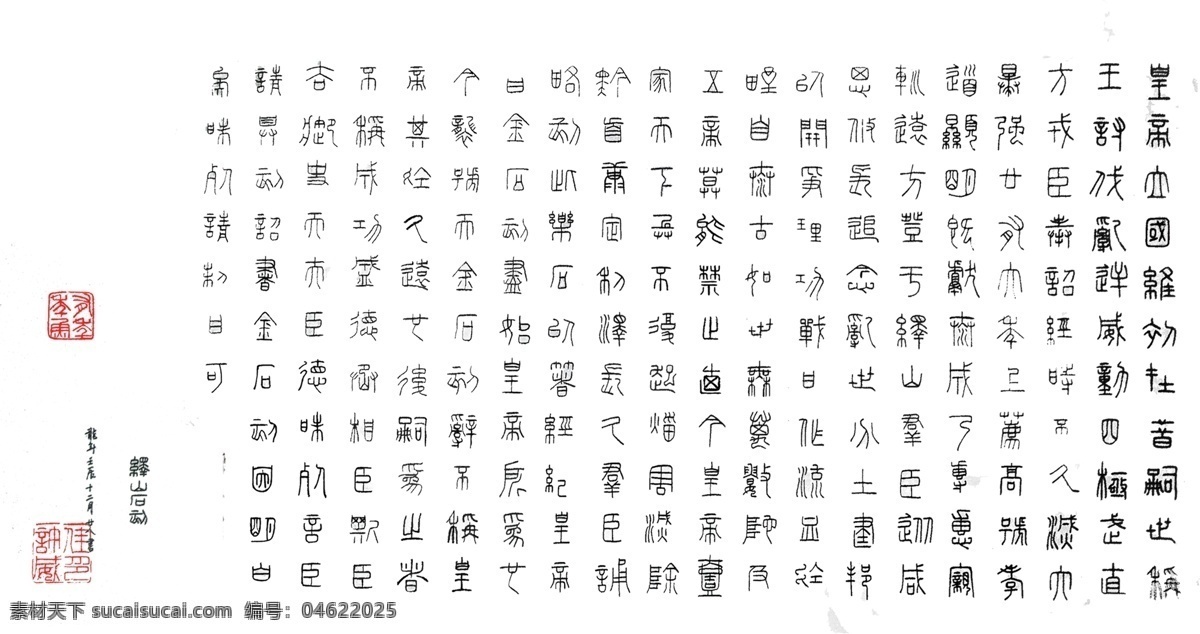 皇帝立國維初在昔嗣世稱
王討伐亂逆威動四極武直
方戎臣奉詔經時不久滅六
暴強廿有六年上薦高號孝
道顯明既獻泰成乃專惠寴
巡遠方登于繹山群臣從咸
思攸長追念亂世分土建邦
以開爭理功戰日作流血於
野自泰古始世無萬數陀及
五帝莫能禁止廼今皇帝壹
家天下兵不復起災害滅除
黔首康定利澤長久群臣誦
略刻此樂石以著經紀皇帝
曰金石刻盡始皇帝所為也
今襲號而金石刻辭不稱皇
帝其於久遠也後嗣為之者
不稱成功盛德丞相臣斯臣
去御史夫大臣德昧死言臣
請具刻詔書金石刻因明白
矣昧死請制曰可
繹山石刻
龍年壬辰十二月廿書
素材天下 sucaisucai.com 编号：04622025